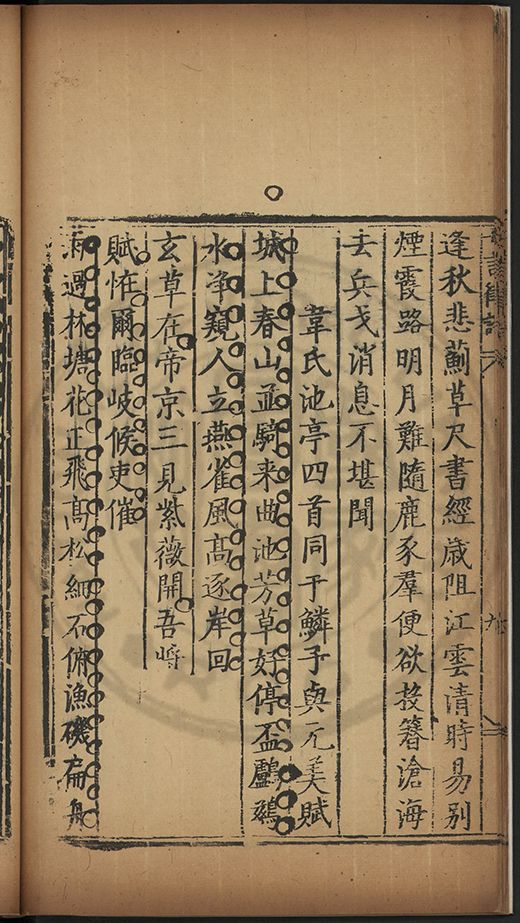 逢秋悲薊草尺書經歲阻江雲清時易別
煙霞路明月難隨鹿豕羣便欲投簪滄海
去兵戈消息不堪聞
韋氏池亭四首同于鱗子與元美賦
城上春山並騎来曲池芳草好停盃鸕鷀
水净窺人立燕雀風髙逐岸回
玄草在帝京三見紫薇開吾將
賦恠爾臨岐候吏催
過林塘花正飛髙松細石俯漁磯扁舟